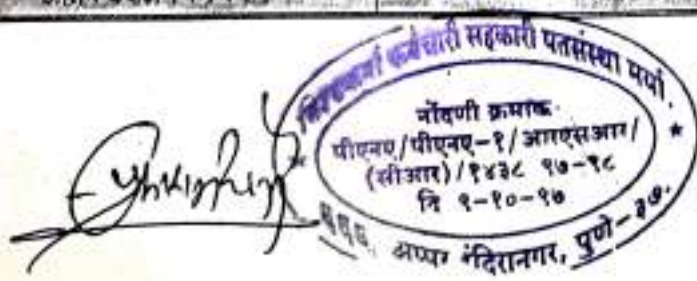 कर्मचारी सहकारी पतसंस्था मर्या.
नोंदणी क्रमांक
पीएनए/पीएनए-१/आरएसआर/
(सीआर)/१४३८ १७-१८
दि १-१०-१७
अप्पर इंदिरानगर, पुणे-३७.